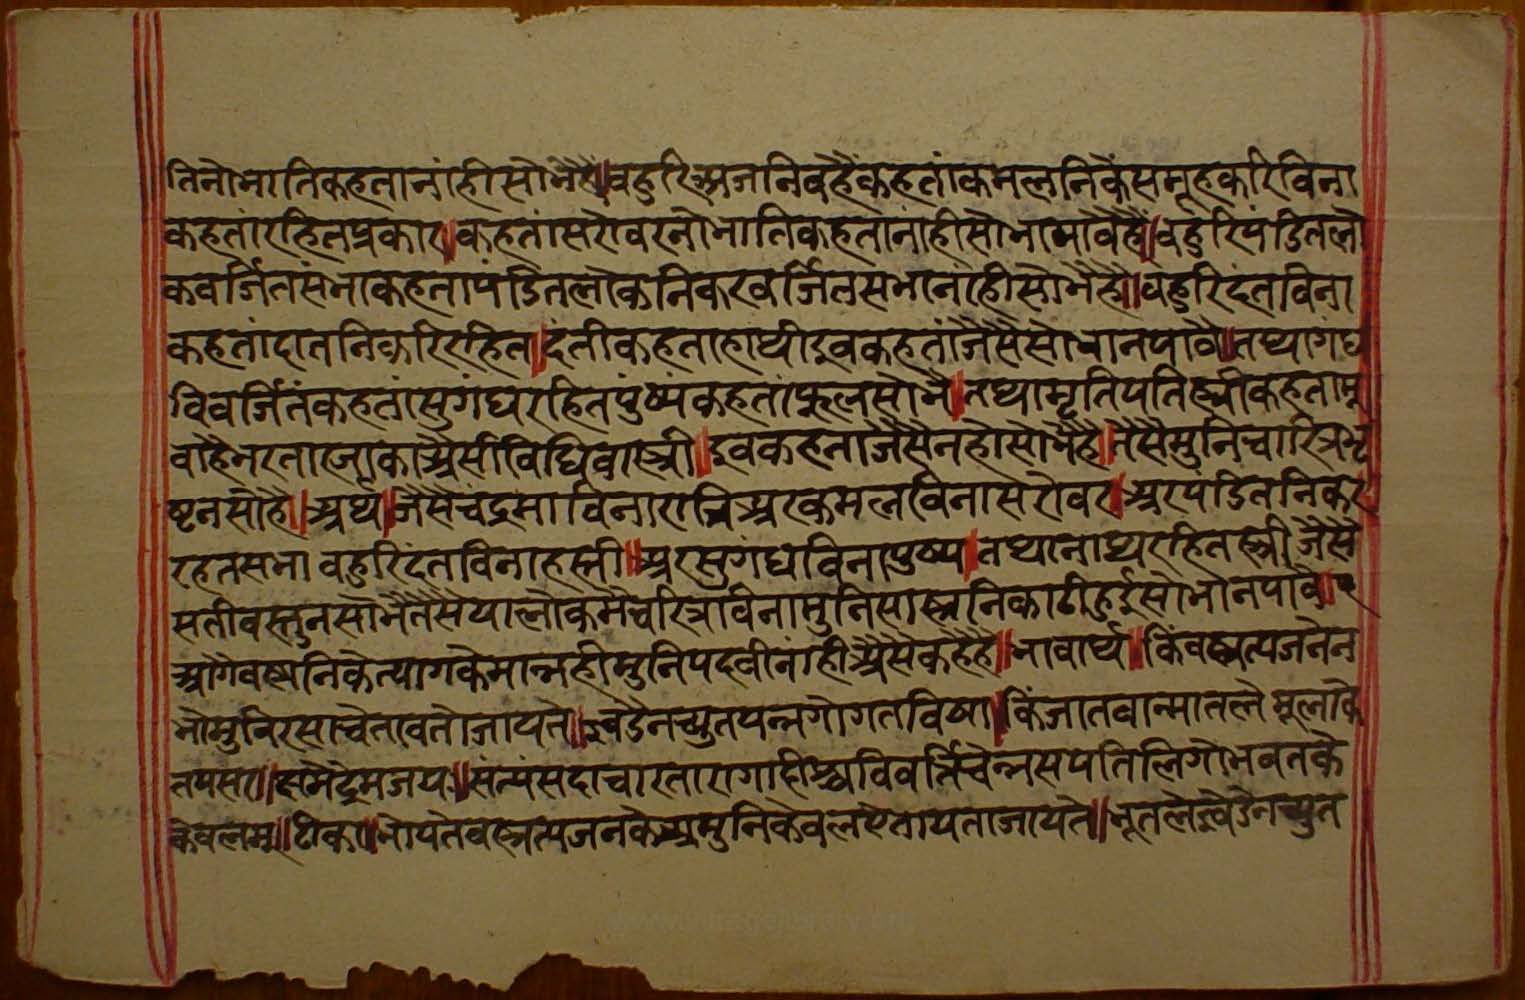 तिनोभातिकहतानांहीसोभैहै॥बहुरिअजनिवहैंकहतांकमलनिकेसमूहकरिविना
कहतांरहितप्रकार॥कहतांसरोवरनोभातिकहतानांहीसोभापावैहै॥बहुरिपंडितलो
कवर्जितसंभाकहतापंडितलोकनिकरवर्जितसभानाहीसोभैहै॥बहुरिदंतविना
कहतांदातनिकरिरहित॥दंतीकहताहाथीइवकहतांजैसैसोभानपावै॥तथागंध
विवर्जितंकहतांसुगंधरहितपुंष्पंकहतांफूलसोभै॥तथामृतिपतिस्त्रीकहतामू
वाहैभरताजाकाअैसीविधिवास्त्री॥इवकहताजैसैनहीसोभैहै॥तैसैमुनिचारित्रभृ
ष्टनसोहै॥अर्थ॥जैसैचंद्रमाविनारात्रिअरकमलविनासरोवर॥अरपंडितनिकर
रहतसभाबहुरिदंतविनाहस्ती॥अरसुगंधविनापुष्प॥तथानाथरहितस्त्रीजैसै
सतीवस्तुनसोभैतैसैयालोकमैचरित्रविनामुनिसास्त्रनिकाढीहुईसोभानपावै॥५
आगैवस्त्रनिकेत्यागकेमात्रहीमुनिपदवीनांहीअैसैकहैहै॥भावार्थ॥किंवस्त्रत्यजनेन
भोमुनिरसाव्चेतावतोजायते॥क्ष्वेडेनच्युतपन्नगोगतविषा॥किंजातवान्भातले॥मूलंकिं
तपसः॥क्षमेंद्रमजयः॥सत्यंसदाचारतारागाहीश्चविवर्त्तिचेन्नसपतिलिंगीभवतके
केवलम्॥टीका॥भोयतेवस्त्रत्यजनकेअमुनिकेवलऐतायताजायते॥भूतलेक्ष्वेडेनच्युत